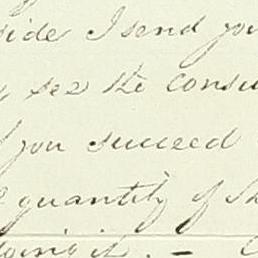 side I send you
see the consu
you succeed
quantity of sh
doing it. –